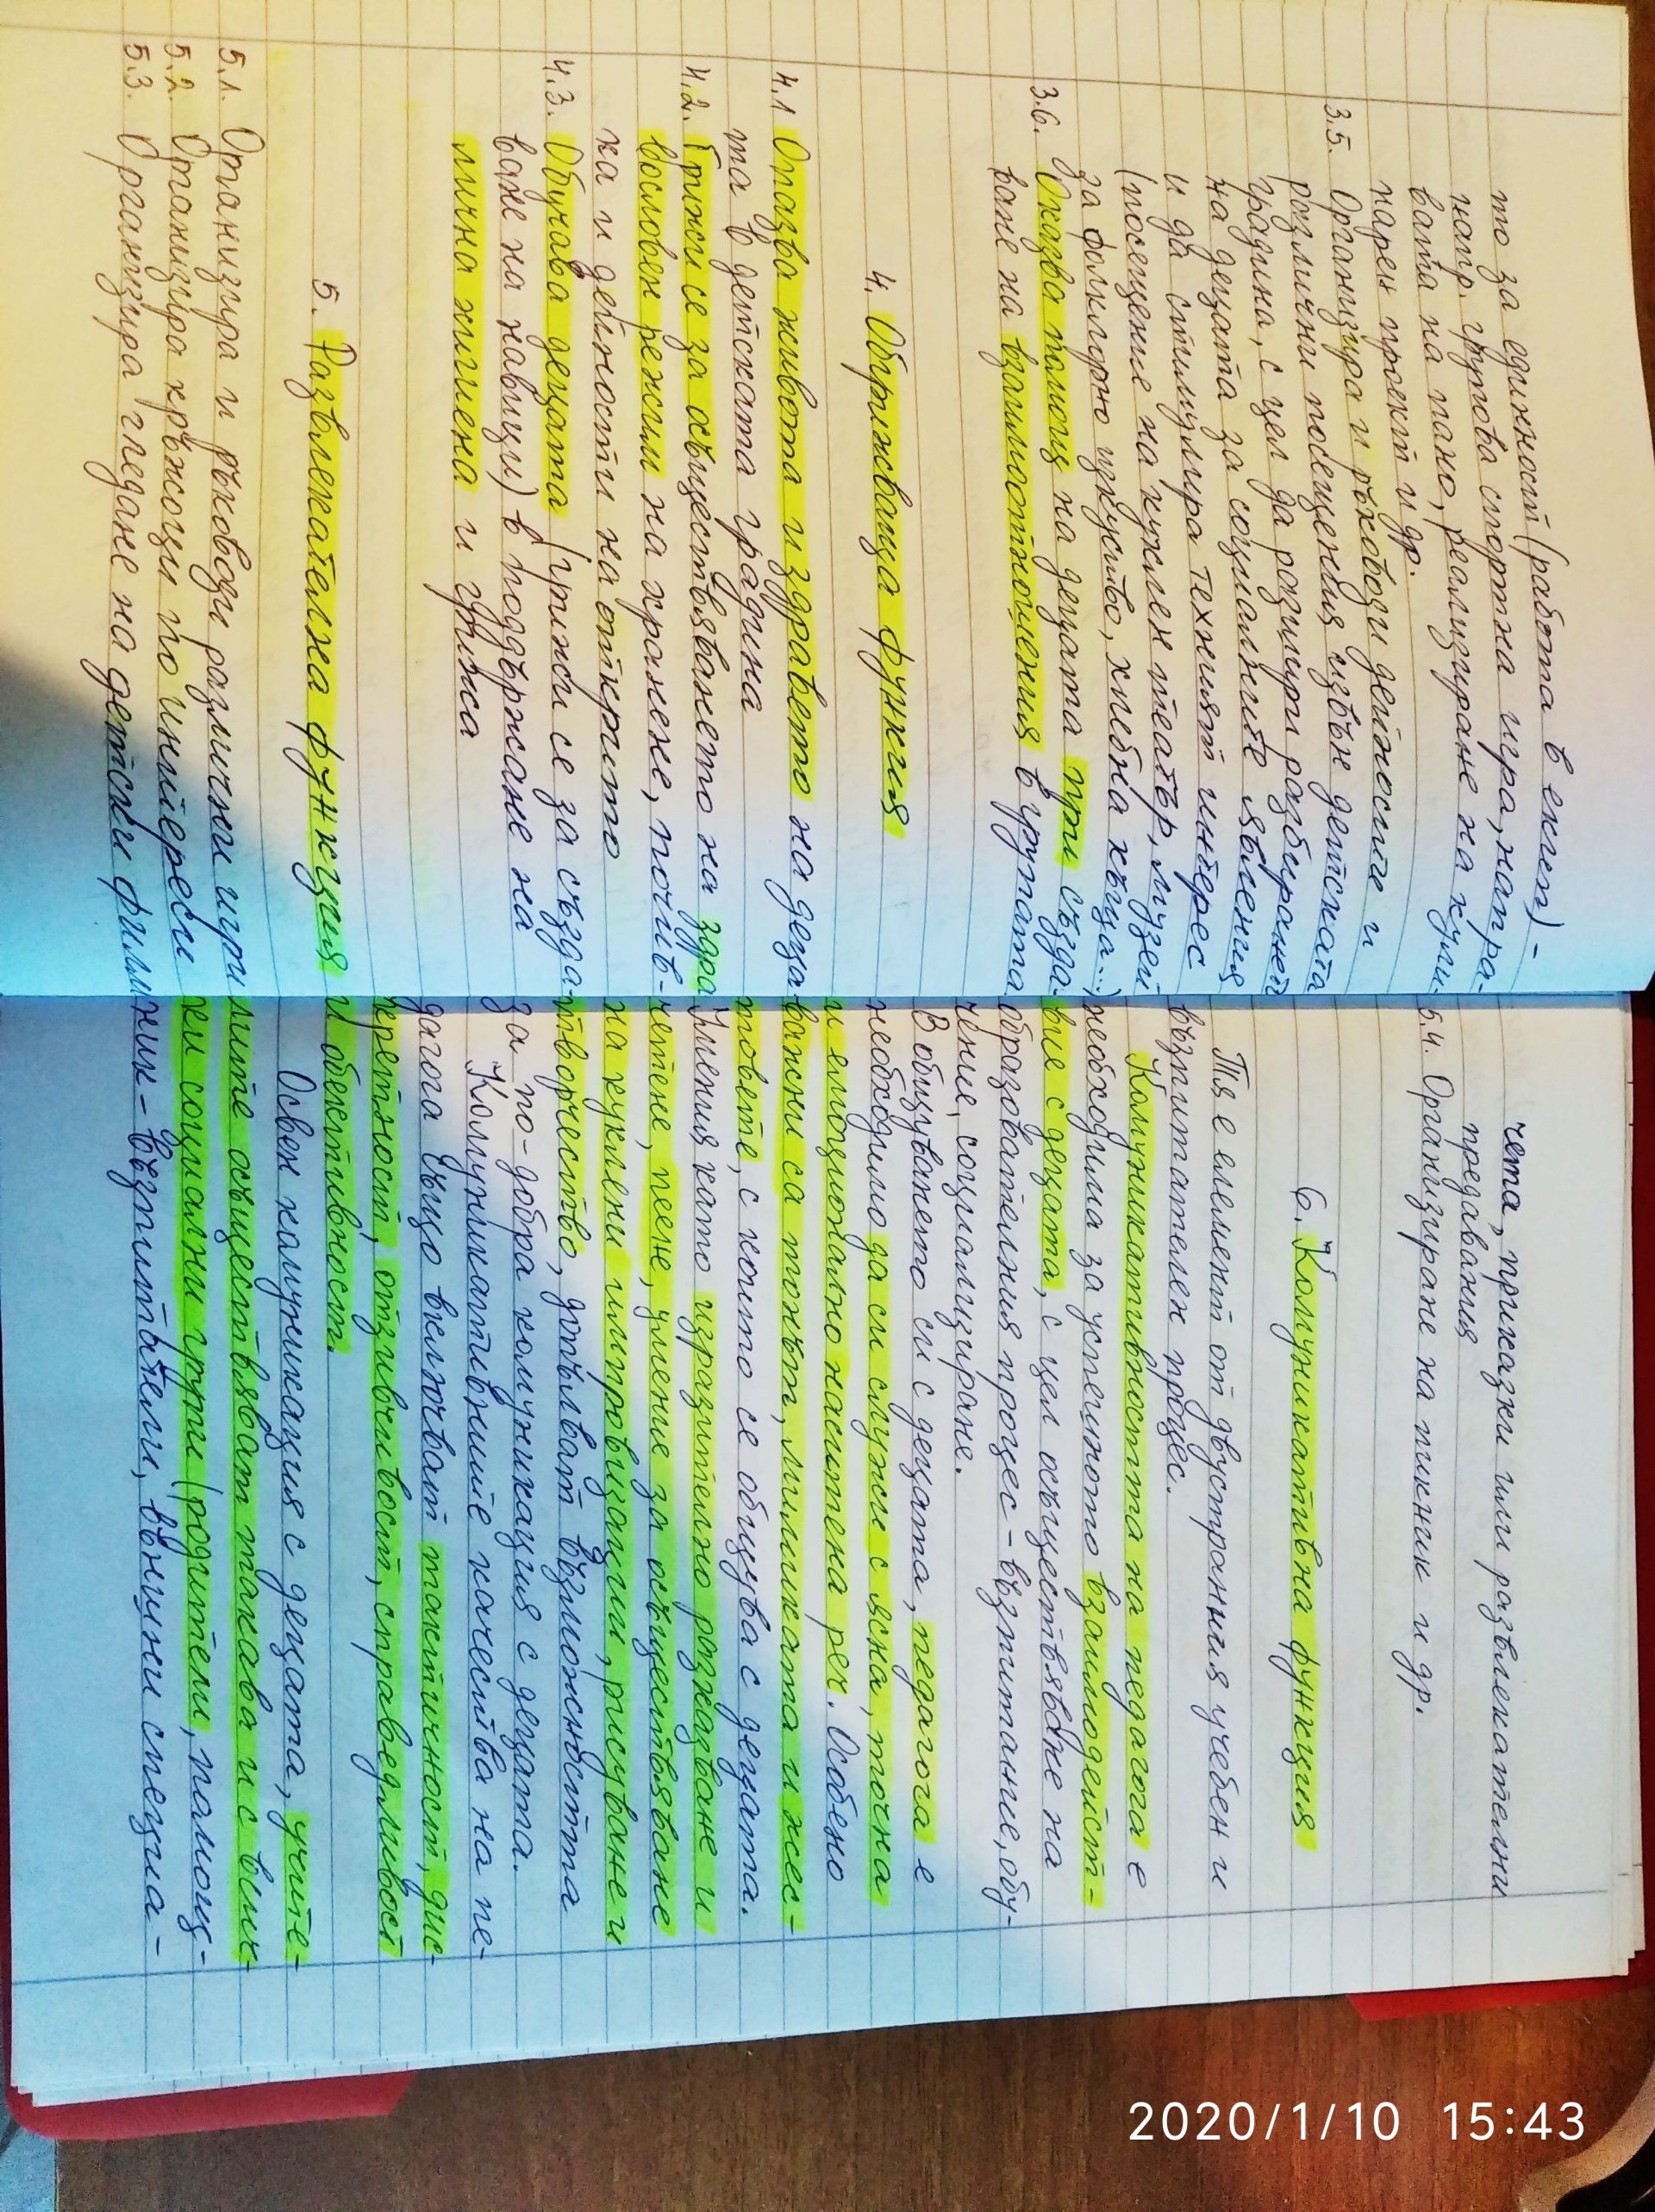 то за единност (работа в екип) -
напр. групова спортна игра, напра-
вата на пано, реализиране на кули-
нарен проект и др.
3.5. Организира и ръководи дейностите и
различни посещения извън детската
градина, с цел да разшири разбиранет
на децата за социалните явления
и да стимулира техният интерес
(посещение на куклен театър, музей
за фолклорно изкуство, хлебна къща...)
3.6. Оказва помощ на децата при създа-
ване на взаимоотношения в групата
4. Обгрижваща функция
4.1 Опазва живота и здравето на деца-
та в детската градина
4.2. Грижи се за осъществяването на здра
вословен режим на хранене, почив-
ка и дейности на открито
4.3. Обучава децата (грижи се за създа-
ване на навици) в поддържане на
лична хигиена и грижа
5. Развлекателна функция
5.1. Организира и ръководи различни игри
5.2. Организира кръжоци по интереси
5.3. Организира гледане на детски филм
чета, приказки или развлекателни
предавания
5.4. Организиране на пикник и др.
6. Комуникативна функция
Тя е елемент от двустранния учебен и
възпитателен процес.
Комуникативността на педагога е
необходима за успешното взаимодейст-
вие с децата, с цел осъществяване на
образователния процес - възпитание, обу-
чение, социализиране.
В общуването си с децата, педагога е
необходимо да си служи с ясна, точна
и емоционално наситена реч. Особено
важни са тонът, мимиката и жес-
товете, с които се общува с децата.
Умения като изразително разказване и
четене, пеене, умение за осъществяване
на куклени импровизации, рисуване и
творчество, допълват възможността
за по-добра комуникация с децата.
Комуникативните качества на пе-
дагога също включват тактичност, дис-
кретност, отзивчивост, справедливост
и обективност.
Освен комуникация с децата, учите-
лите осъществяват такава и с вси-
ки социални групи (родители, помощ-
ник - възпитатели, външни специа-
2020/1/10 15:43